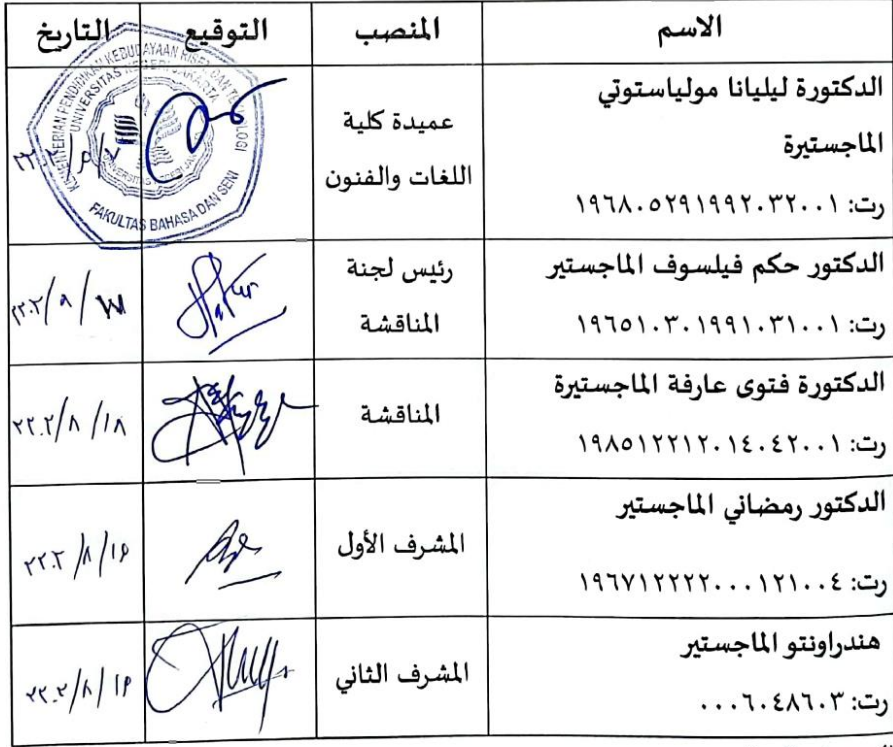 الاسم المنصب التوقيع التاريخ
الدكتورة ليليانا مولياستوتي
الماجستيرة
رت: ١٩٦٨٠٥٢٩١٩٩٢٠٣٢٠٠١
عميدة كلية
اللغات والفنون
KEMENTERIAN PENDIDIKAN KEBUDAYAAN RISET DAN TEKNOLOGI
UNIVERSITAS NEGERI JAKARTA
FAKULTAS BAHASA DAN SENI
الدكتور حكم فيلسوف الماجستير
رت: ١٩٦٥١٠٣٠١٩٩١٠٣١٠٠١
رئيس لجنة
المناقشة
الدكتورة فتوى عارفة الماجستيرة
رت: ١٩٨٥١٢٢١٢٠١٤٠٤٢٠٠١
المناقشة
الدكتور رمضاني الماجستير
رت: ١٩٦٧١٢٢٢٢٠٠٠١٢١٠٠٤
المشرف الأول
هندراونتو الماجستير
رت: ٠٠٠٦٠٤٨٦٠٣
المشرف الثاني